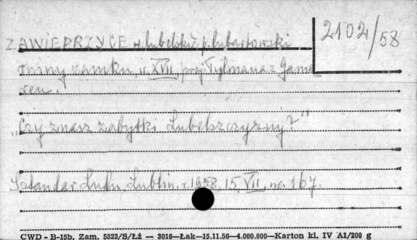 2102/58
ZAWIEPRZYCE w. lubelski p. lubartowski
ruiny zamku, w. XVII, proj. Tylmana z Game
ren.
"Czy znasz zabytki Lubelszczyzny?"
Sztandar Ludu. Lublin, r. 1958, 15 VII, nr. 167.
CWD - B-15b. Zam. 5323/S/Łż — 3016—Łak—15.11.56—4.000.000—Karton kl. IV A1/200 g